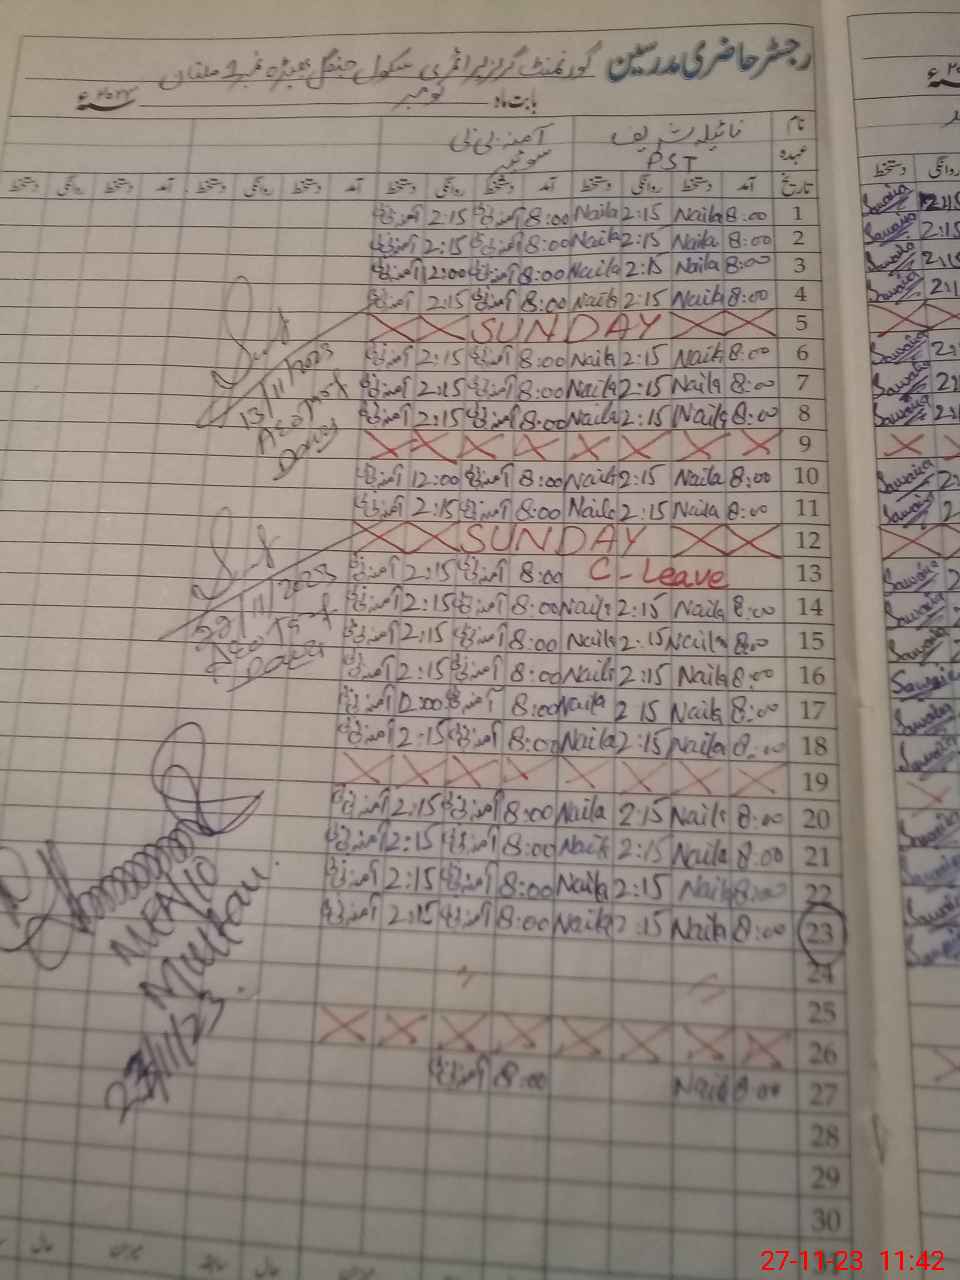 رجسٹر حاضری مدرسین گورنمنٹ گرلز پرائمری سکول جنگل بھیڑہ نمبر 1 ملتان
بابت ماہ نومبر ۲۰۲۳ء
نام نائیلہ شریف آمنہ بی بی
عہدہ PST سویپر
تاریخ آمد دستخط روانگی دستخط آمد دستخط روانگی دستخط آمد دستخط روانگی دستخط آمد دستخط روانگی دستخط
1 8:00 Naila 2:15 Naila 8:00 آمنہ بی بی 2:15 آمنہ بی بی
2 8:00 Naila 2:15 Naila 8:00 آمنہ بی بی 2:15 آمنہ بی بی
3 8:00 Naila 2:15 Naila 8:00 آمنہ بی بی 12:00 آمنہ بی بی
4 8:00 Naila 2:15 Naila 8:00 آمنہ بی بی 2:15 آمنہ بی بی
5 SUNDAY
6 8:00 Naila 2:15 Naila 8:00 آمنہ بی بی 2:15 آمنہ بی بی
7 8:00 Naila 2:15 Naila 8:00 آمنہ بی بی 2:15 آمنہ بی بی
8 8:00 Naila 2:15 Naila 8:00 آمنہ بی بی 2:15 آمنہ بی بی
9
10 8:00 Naila 2:15 Naila 8:00 آمنہ بی بی 12:00 آمنہ بی بی
11 8:00 Naila 2:15 Naila 8:00 آمنہ بی بی 2:15 آمنہ بی بی
12 SUNDAY
13 C-Leave 8:00 آمنہ بی بی 2:15 آمنہ بی بی
14 8:00 Naila 2:15 Naila 8:00 آمنہ بی بی 2:15 آمنہ بی بی
15 8:00 Naila 2:15 Naila 8:00 آمنہ بی بی 2:15 آمنہ بی بی
16 8:00 Naila 2:15 Naila 8:00 آمنہ بی بی 2:15 آمنہ بی بی
17 8:00 Naila 2:15 Naila 8:00 آمنہ بی بی 12:00 آمنہ بی بی
18 8:00 Naila 2:15 Naila 8:00 آمنہ بی بی 2:15 آمنہ بی بی
19
20 8:00 Naila 2:15 Naila 8:00 آمنہ بی بی 2:15 آمنہ بی بی
21 8:00 Naila 2:15 Naila 8:00 آمنہ بی بی 2:15 آمنہ بی بی
22 8:00 Naila 2:15 Naila 8:00 آمنہ بی بی 2:15 آمنہ بی بی
23 8:00 Naila 2:15 Naila 8:00 آمنہ بی بی 2:15 آمنہ بی بی
24
25
26
27 8:00 Naila 8:00 آمنہ بی بی
28
29
30
13/11/2023
22/11/2023
MEA/10
Multan
23/11/23
27-11-23 11:42